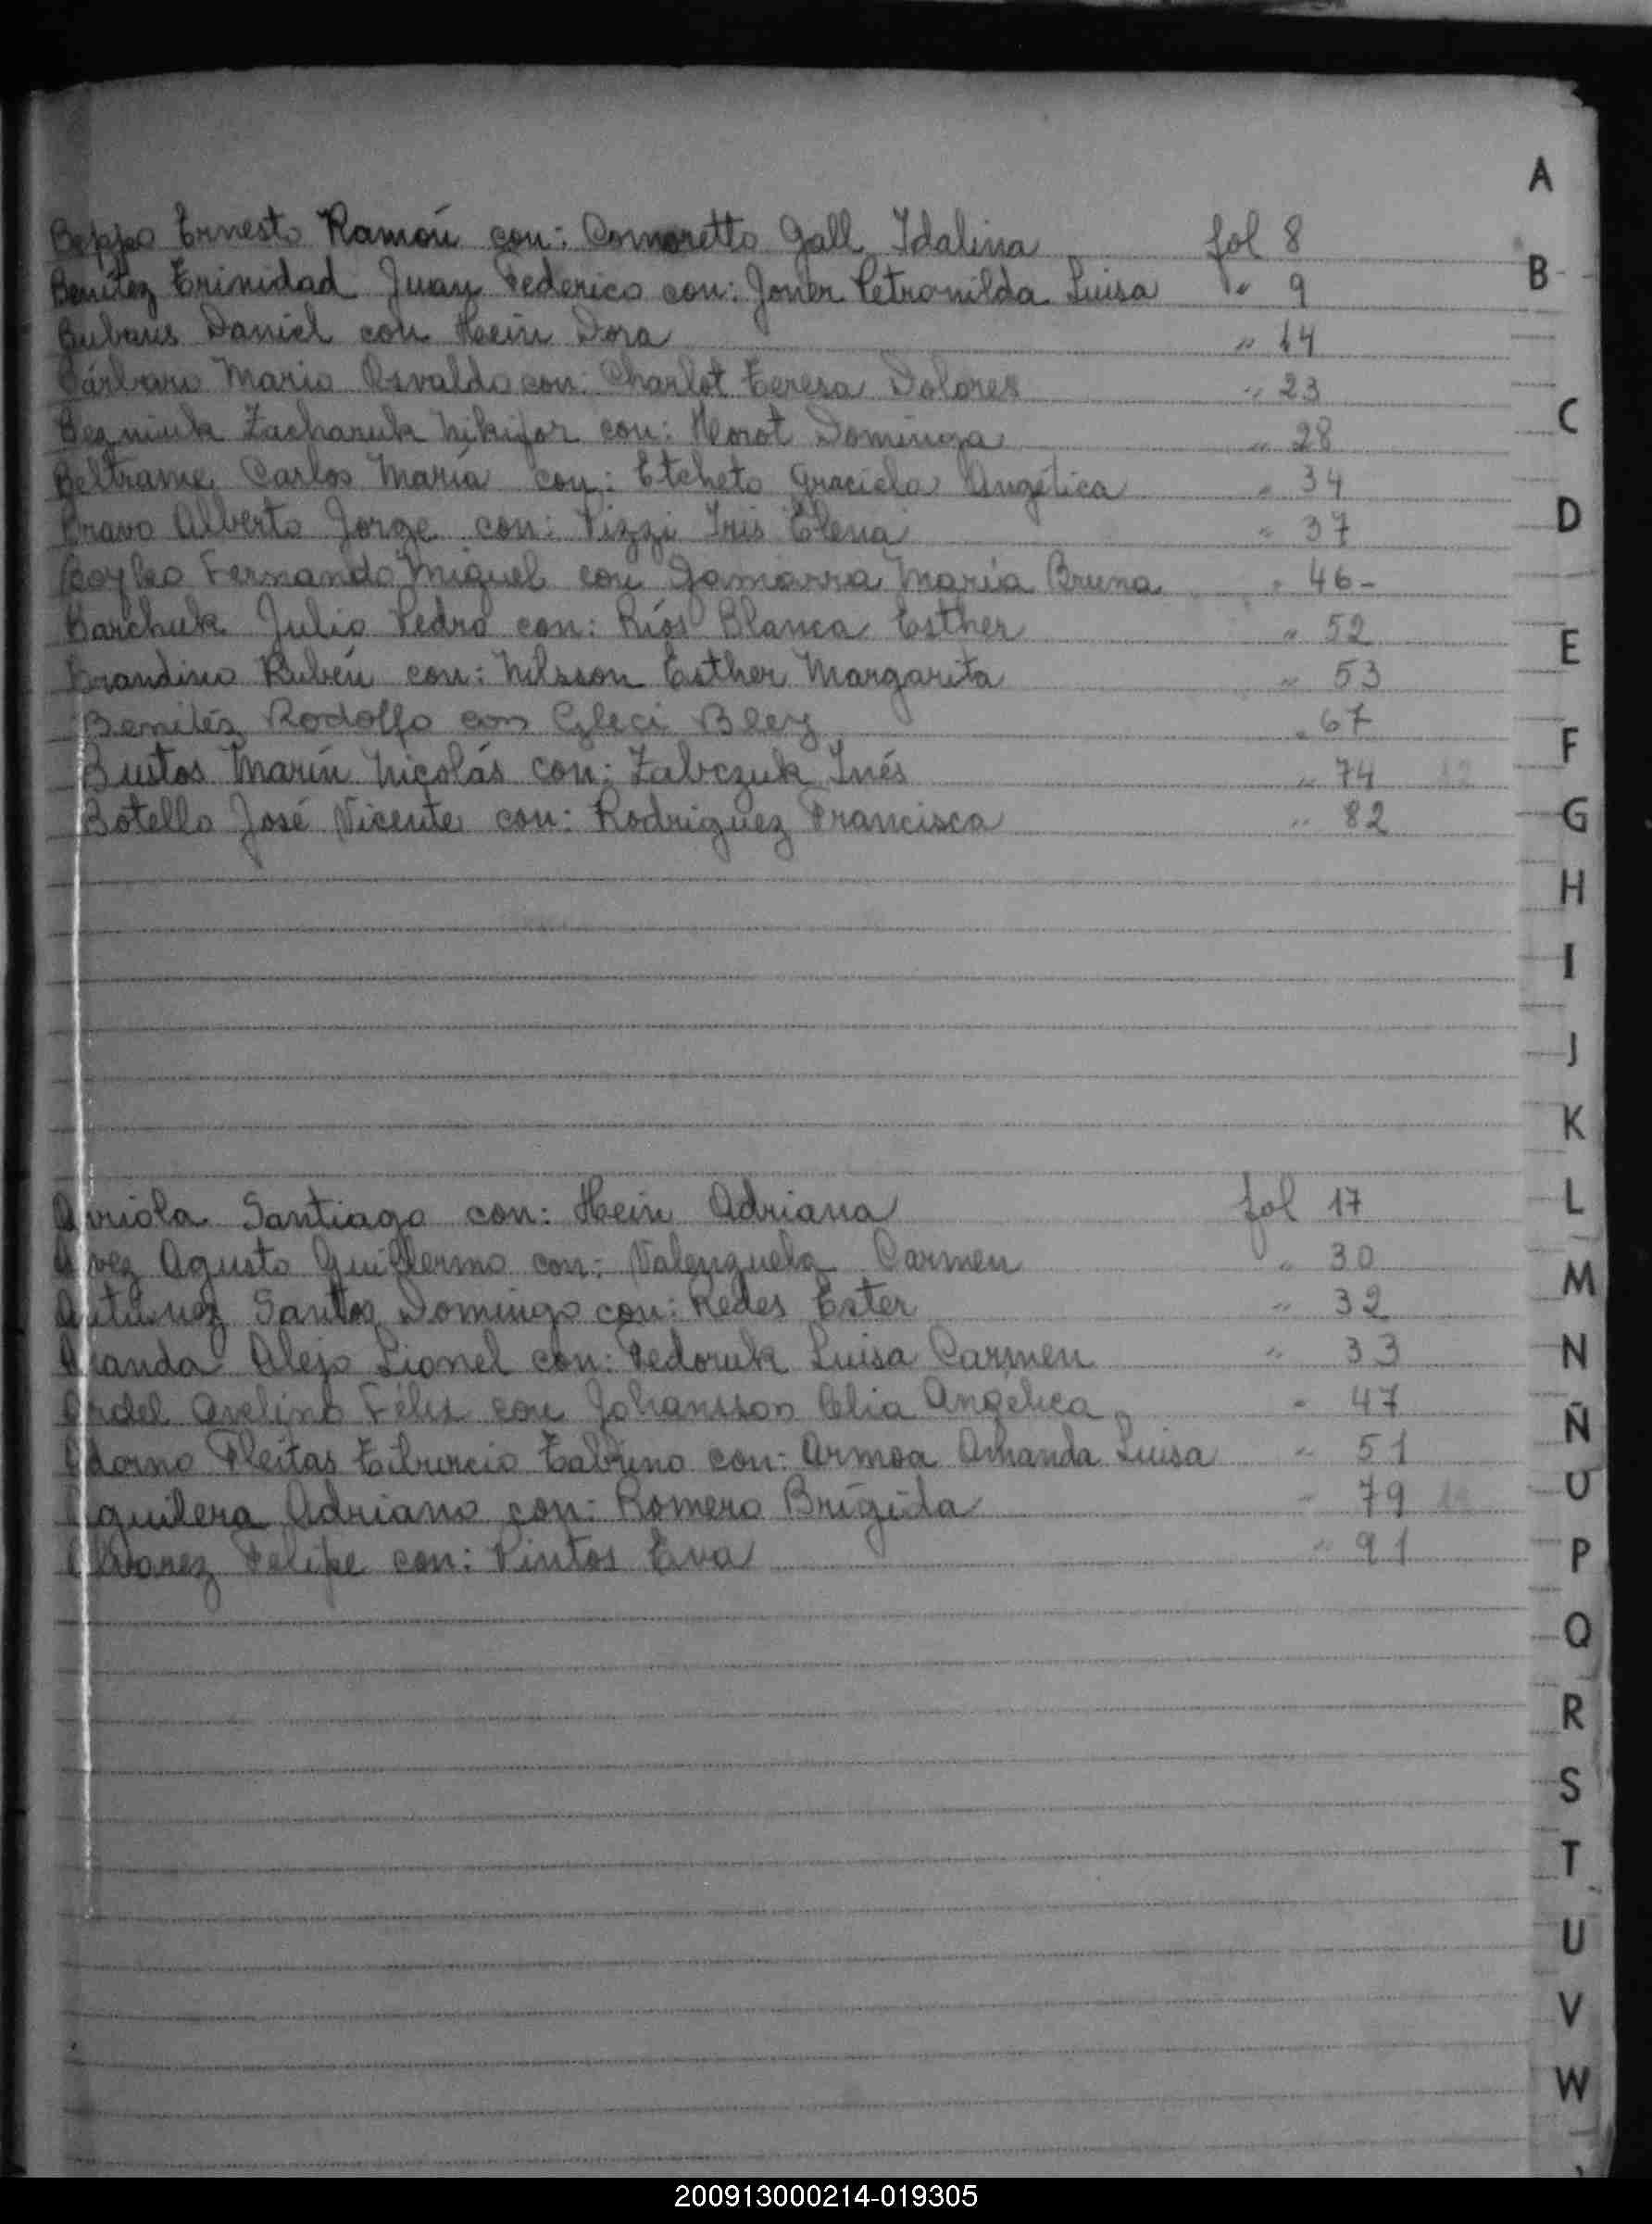 Beppo Ernesto Ramón con: Comoretto Gall Idalina fol 8
Benítez Trinidad Juan Federico con: Joner Petronilda Luisa " 9
Daniel con Hein Dora " 14
Bárbaro Mario Osvaldo con: Charlot Teresa Dolores " 23
Bezniuk Zacharuk Nikifor con: Morot Dominga " 28
Beltrame Carlos María con: Etcheto Graciela Angélica " 34
Bravo Alberto Jorge con: Pizzi Iris Elena " 37
Boyko Fernando Miguel con Gamarra María Bruna " 46-
Barchuk Julio Pedro con: Ríos Blanca Esther " 52
Brandino Rubén con: Nilsson Esther Margarita " 53
Benitéz Rodolfo con Gleci Bley " 67
Bustos Marín Nicolás con: Zabczuk Inés " 74
Botello José Vicente con: Rodriguez Francisca " 82
Arriola Santiago con: Hein Adriana fol 17
Agusto Guillermo con: Valenzuela Carmen " 30
Antunez Santos Domingo con: Redes Ester " 32
Aranda Alejo Lionel con: Fedoruk Luisa Carmen " 33
Avelino Félix con Johansson Celia Angélica " 47
Adorno Fleitas Tiburcio con: Armoa Amanda Luisa " 51
Aguilera Adriano con: Romero Brígida " 79
Alvarez Felipe con: Pintos Eva " 91
A
B
C
D
E
F
G
H
I
J
K
L
M
N
Ñ
O
P
Q
R
S
T
U
V
W
200913000214-019305